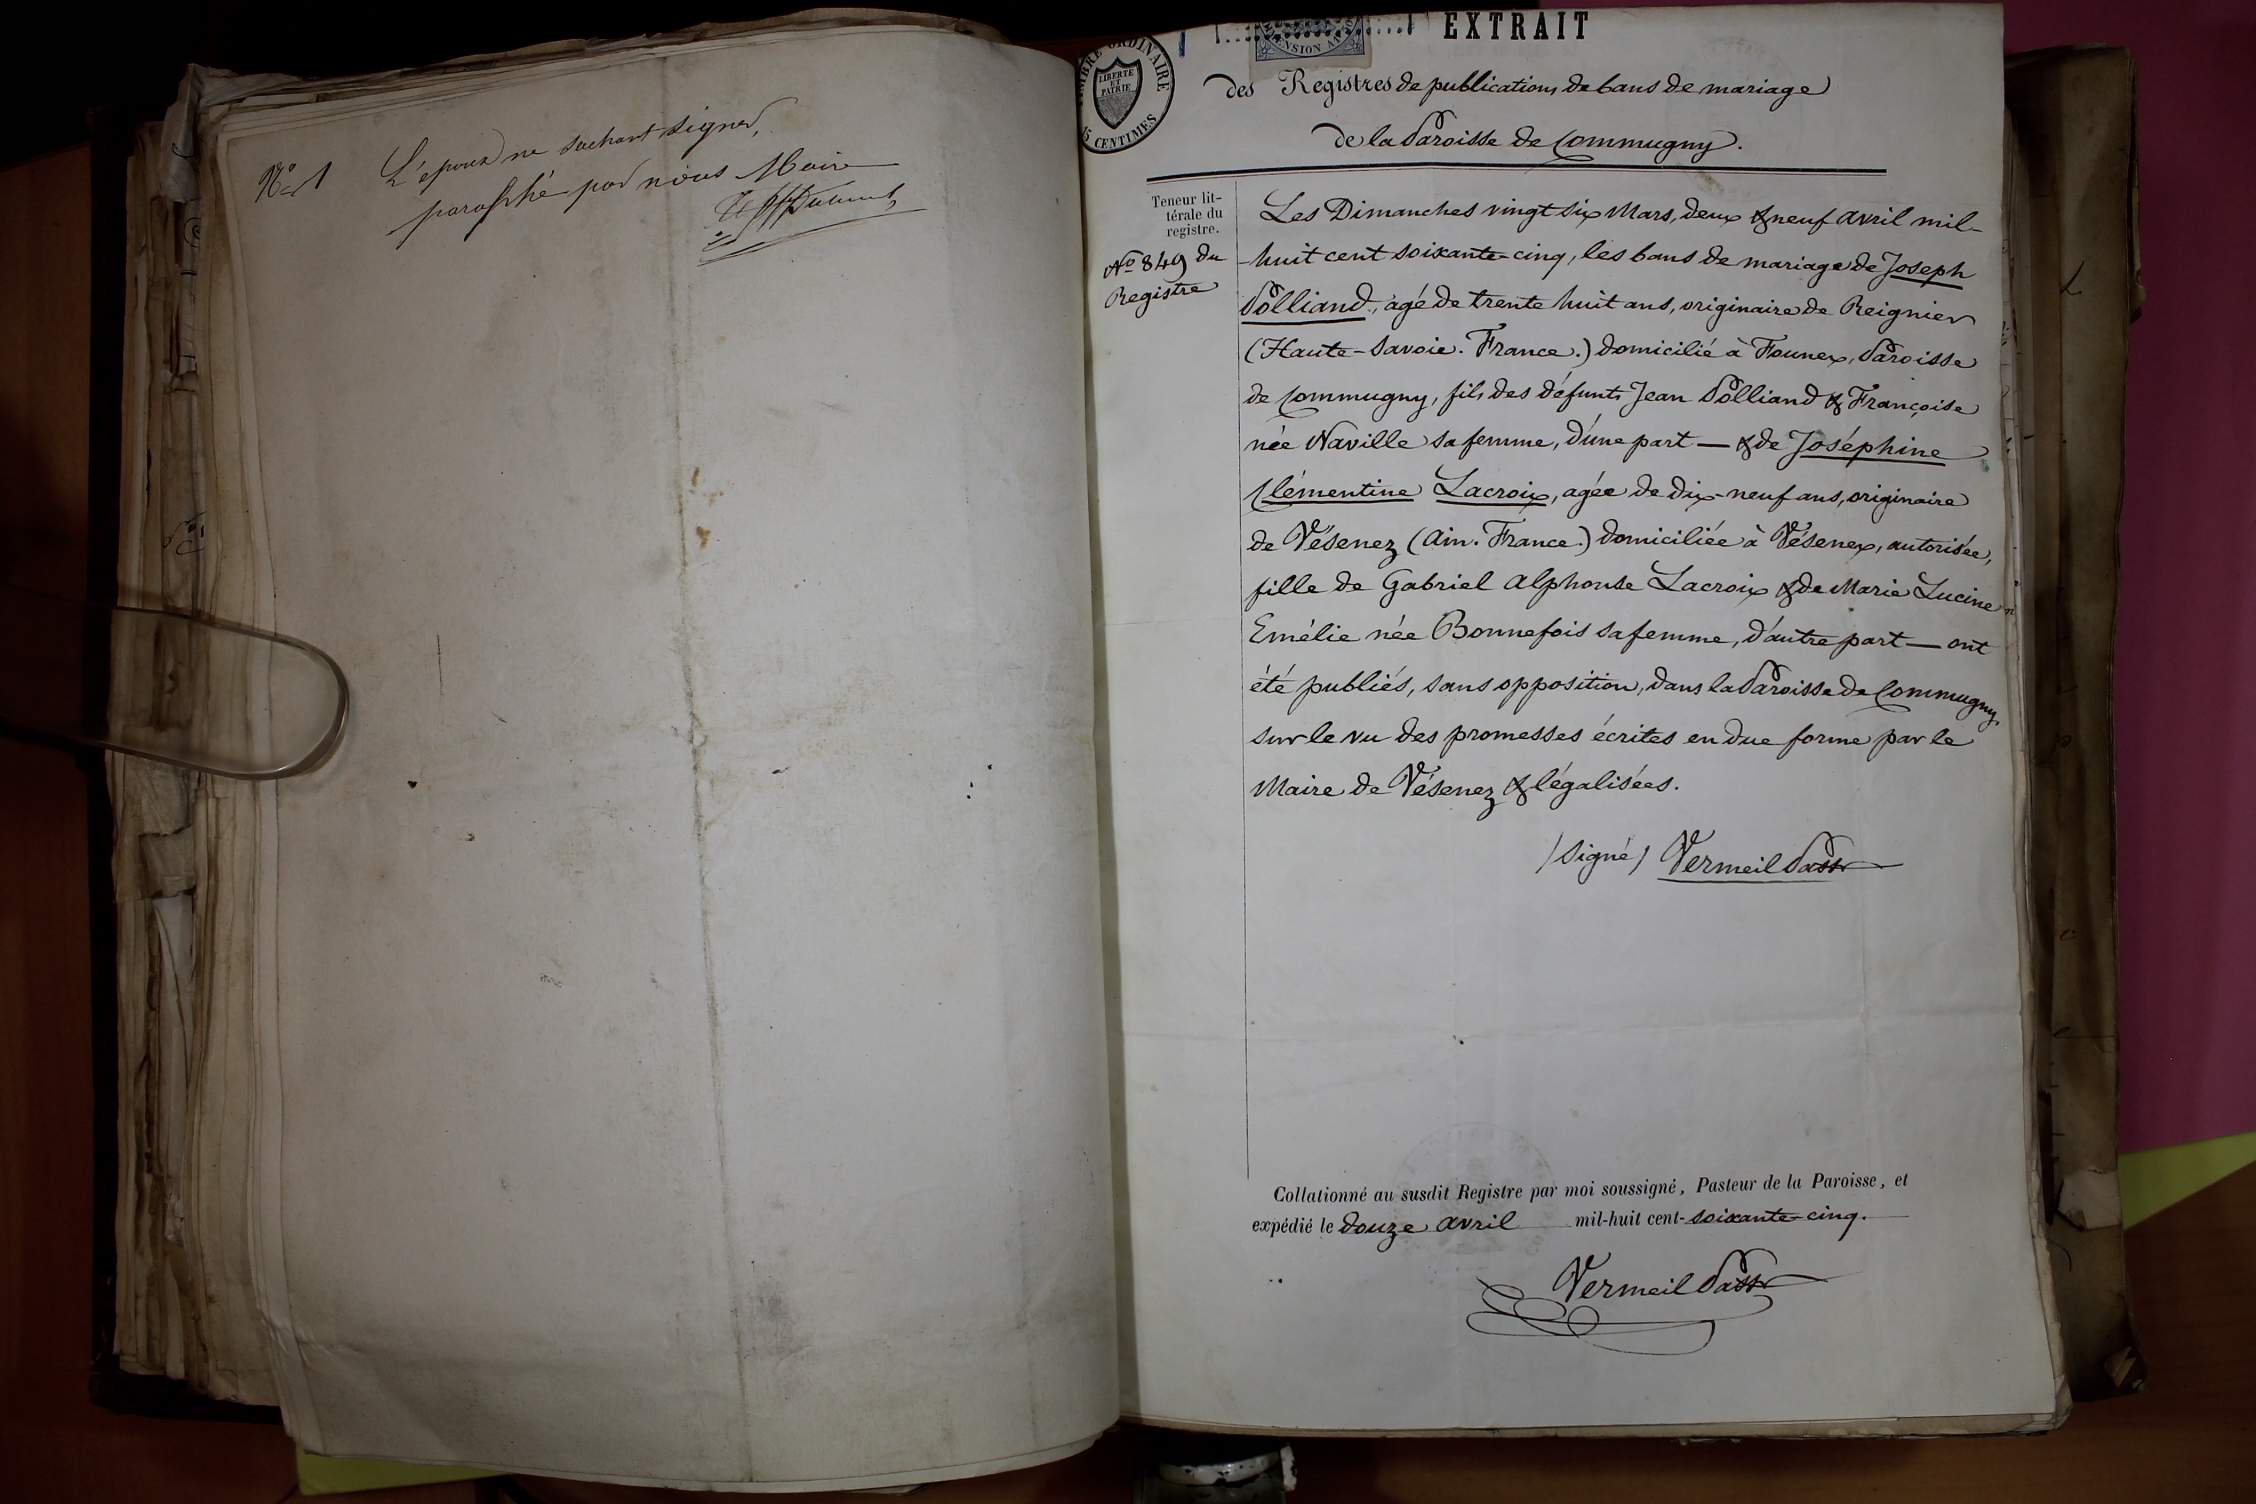 No 1
L'époux ne sachant signer,
paraphé par nous Maire
TIMBRE ORDINAIRE
LIBERTE
ET
PATRIE
15 CENTIMES
EXTRAIT
des Registres de publications de bans de mariage
de la Paroisse de Commugny.
Teneur lit-
térale du
registre.
No 849 du
Registre
Les Dimanches vingt six Mars, deux & neuf avril mil-
-huit cent soixante-cinq, les bans de mariage de Joseph
Polliand, agé de trente huit ans, originaire de Reignier
(Haute-Savoie. France.) domicilié à Founex, Paroisse
de Commugny, fils des défunts Jean Polliand & Françoise
née Naville sa femme, d'une part — & de Joséphine
Clémentine Lacroix, agée de dix-neuf ans, originaire
de Vésenez (Ain. France.) domiciliée à Vésenex, autorisée,
fille de Gabriel Alphonse Lacroix & de Marie Lucine
Emélie née Bonnefois sa femme, d'autre part — ont
été publiés, sans opposition, dans la Paroisse de Commugny
sur le vu des promesses écrites en due forme par le
Maire de Vésenez & légalisées.
/signé/ Vermeil Pastr
Collationné au susdit Registre par moi soussigné, Pasteur de la Paroisse, et
expédié le douze avril mil-huit cent-soixante-cinq.
Vermeil Pastr